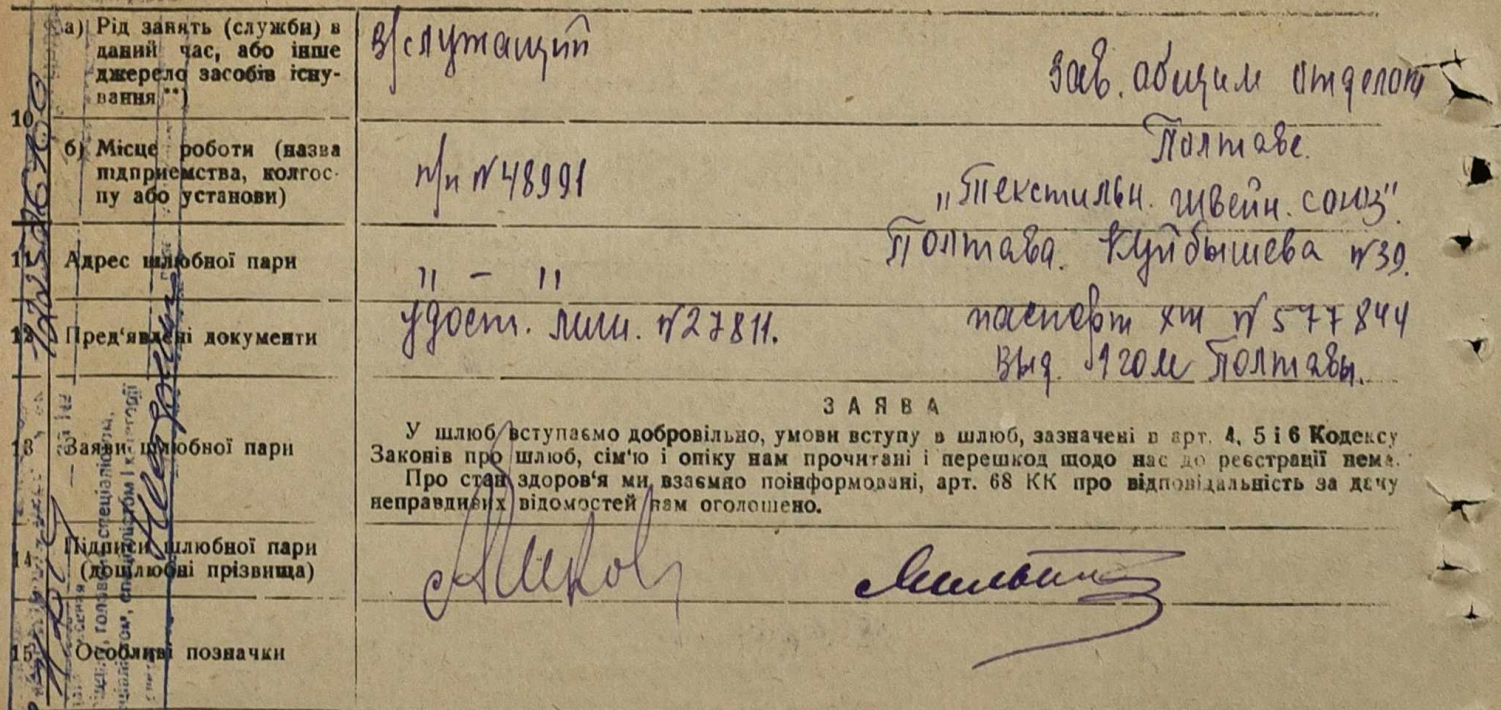 а) Рід занять (служби) в
даний час, або інше
джерело засобів існу-
вання **)
в/служащий
Зав. общим отделом
10
б) Місце роботи (назва
підприємства, колгос-
пу або установи)
п/п №48991
Полтаве.
„Текстильн. швейн. союз".
11 Адрес шлюбної пари
" - "
Полтава. Куйбышева №39.
12 Пред'явлені документи
удост. личн. №27811.
паспорт № 577844
выд. 1 гом Полтавы.
ЗАЯВА
13 Заяви шлюбної пари
У шлюб вступаємо добровільно, умови вступу в шлюб, зазначені в арт. 4, 5 і 6 Кодексу
Законів про шлюб, сім'ю і опіку нам прочитані і перешкод щодо нас до реєстрації нема.
Про стан здоров'я ми взаємно поінформовані, арт. 68 КК про відповідальність за дачу
неправдивих відомостей нам оголошено.
14 Підписи шлюбної пари
(дошлюбні прізвища)
15 Особливі позначки